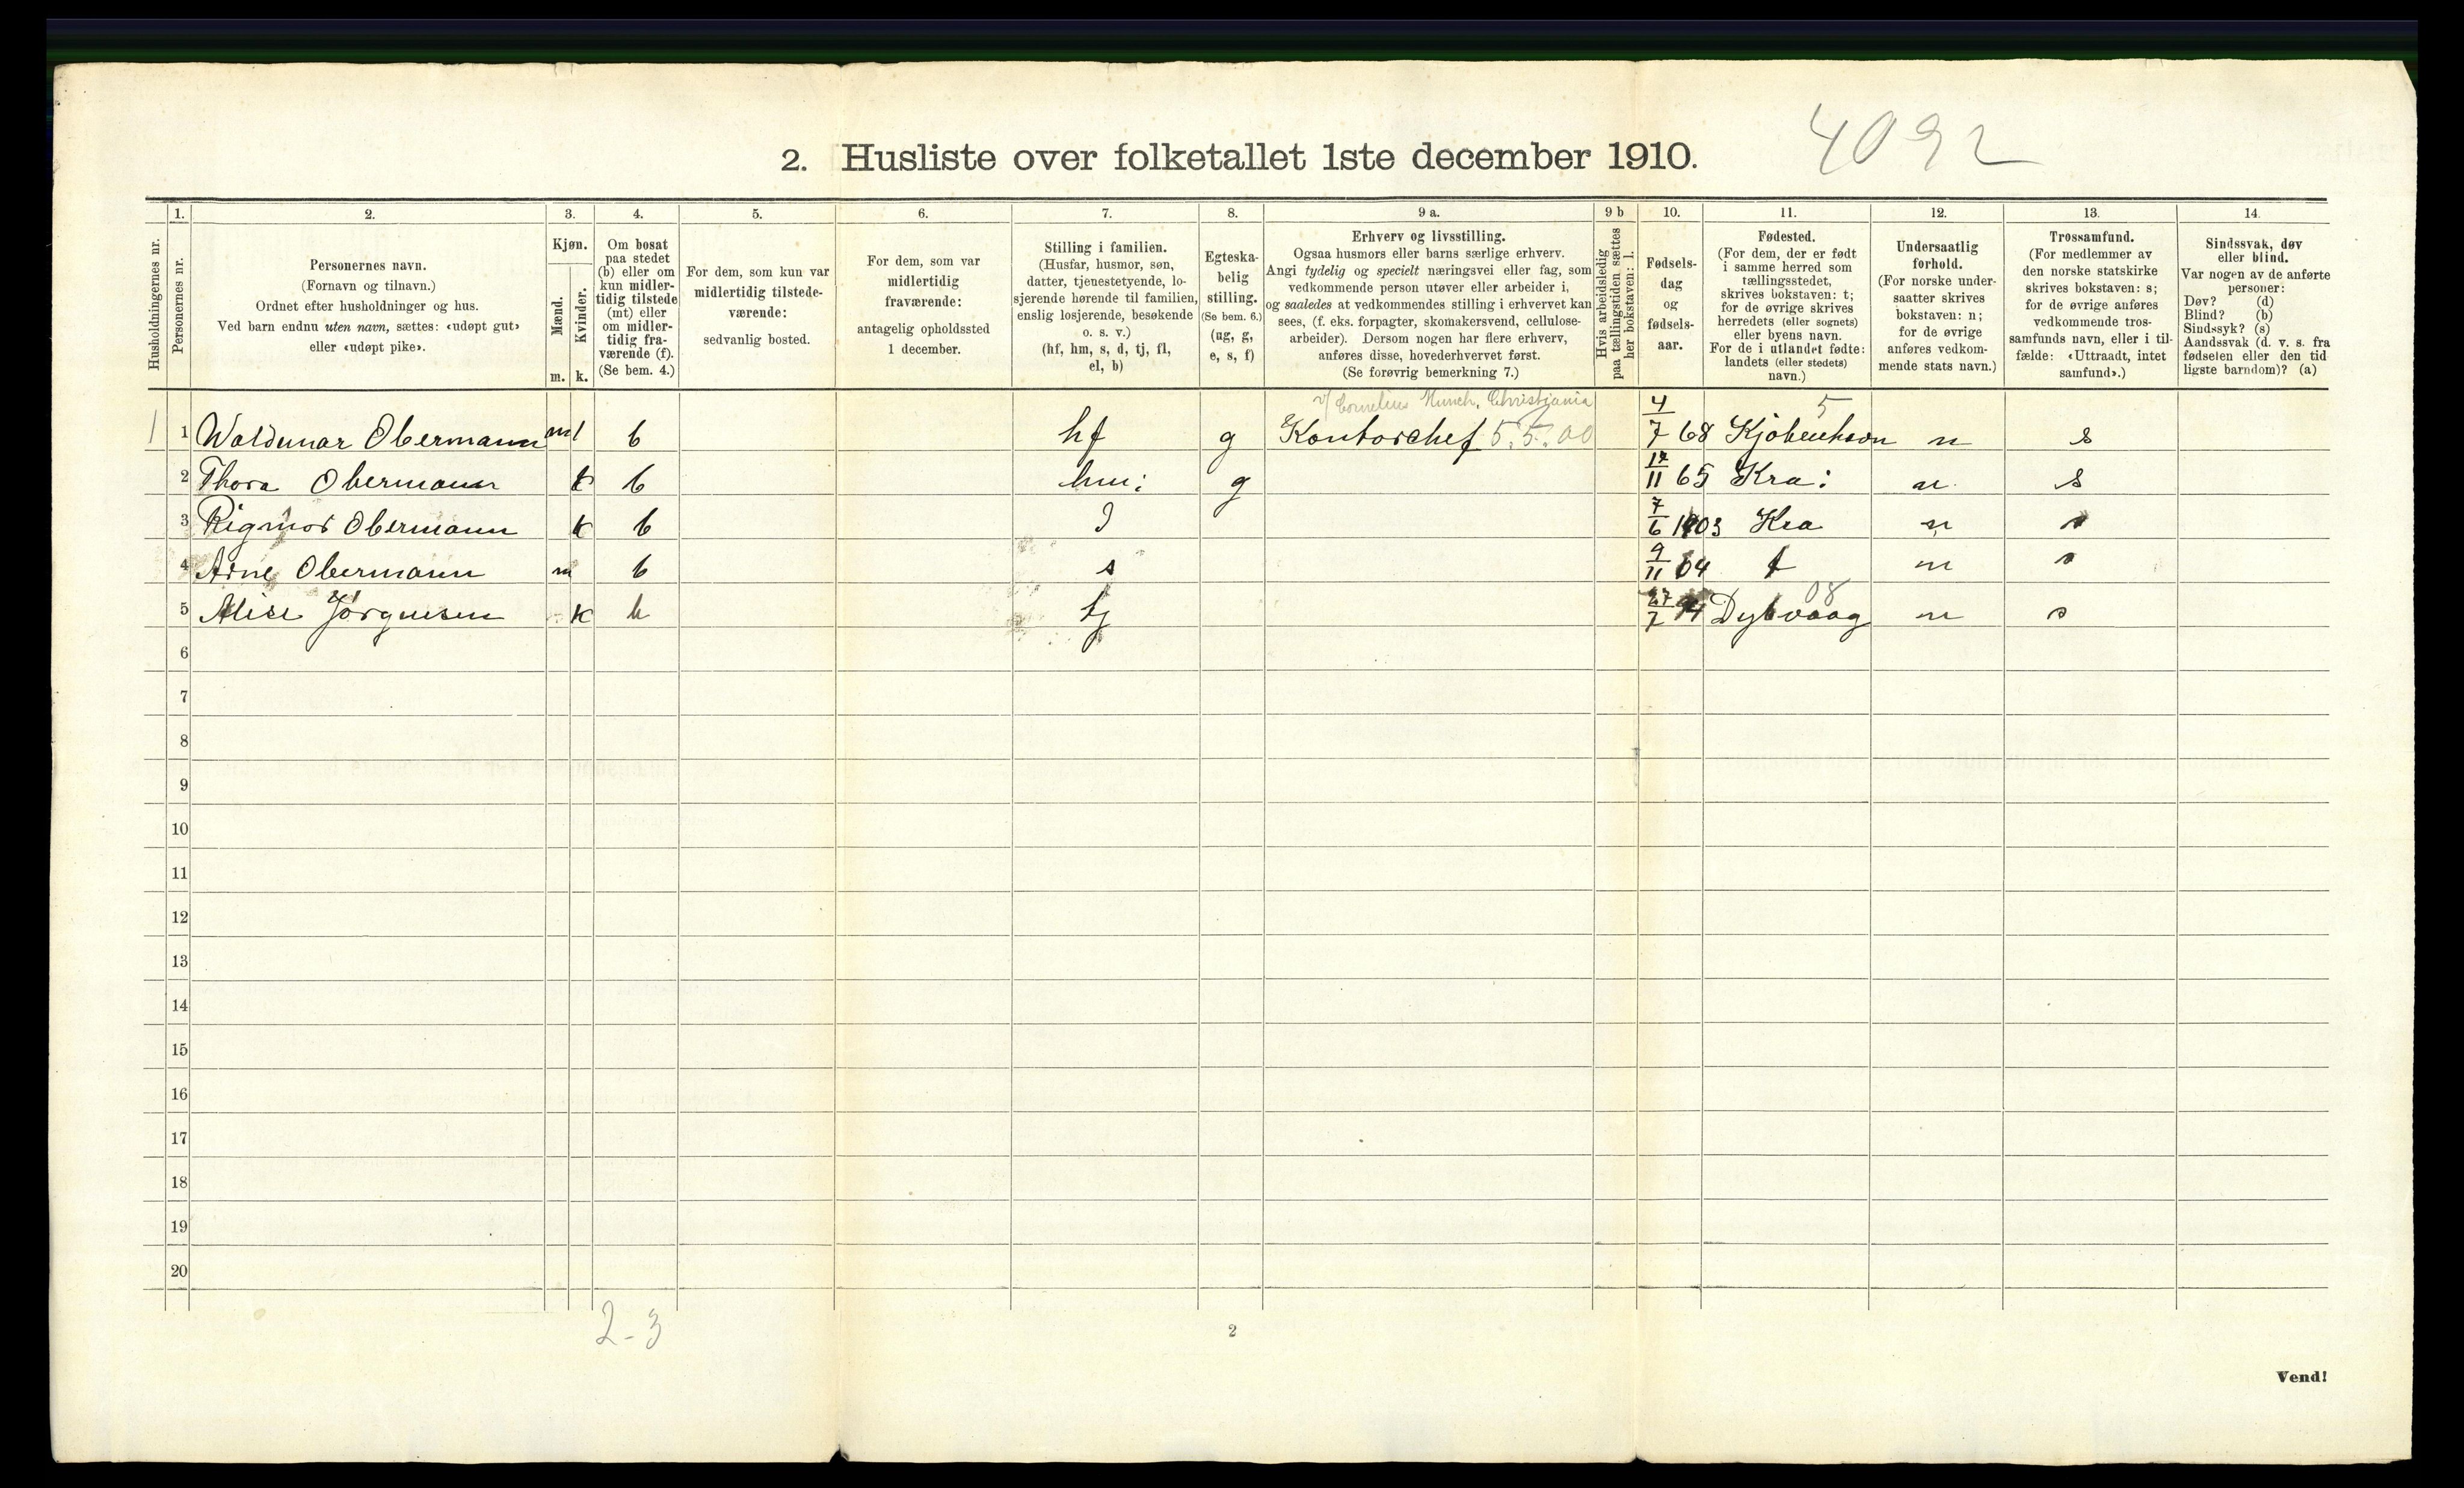 4092
2. Husliste over folketallet 1ste december 1910.
Husholdningernes nr.
1.
Personernes nr.
2.
Personernes navn.
(Fornavn og tilnavn.)
Ordnet efter husholdninger og hus.
Ved barn endnu uten navn, sættes: «udøpt gut»
eller «udøpt pike».
3.
Kjøn.
Mænd.
Kvinder.
m. k.
4.
Om bosat
paa stedet
(b) eller om
kun midler-
tidig tilstede
(mt) eller
om midler-
tidig fra-
værende (f).
(Se bem. 4.)
5.
For dem, som kun var
midlertidig tilstede-
værende:
sedvanlig bosted.
6.
For dem, som var
midlertidig
fraværende:
antagelig opholdssted
1 december.
7.
Stilling i familien.
(Husfar, husmor, søn,
datter, tjenestetyende, lo-
sjerende hørende til familien,
enslig losjerende, besøkende
o. s. v.)
(hf, hm, s, d, tj, fl,
el, b)
8.
Egteska-
belig
stilling.
(Se bem. 6.)
(ug, g,
e, s, f)
9 a.
Erhverv og livsstilling.
Ogsaa husmors eller barns særlige erhverv.
Angi tydelig og specielt næringsvei eller fag, som
vedkommende person utøver eller arbeider i,
og saaledes at vedkommendes stilling i erhvervet kan
sees, (f. eks. forpagter, skomakersvend, cellulose-
arbeider). Dersom nogen har flere erhverv,
anføres disse, hovederhvervet først.
(Se forøvrig bemerkning 7.)
9 b
Hvis arbeidsledig
paa tællingstiden sættes
her bokstaven: l.
10.
Fødsels-
dag
og
fødsels-
aar.
11.
Fødested.
(For dem, der er født
i samme herred som
tællingsstedet,
skrives bokstaven: t;
for de øvrige skrives
herredets (eller sognets)
eller byens navn.
For de i utlandet fødte:
landets (eller stedets)
navn.)
12.
Undersaatlig
forhold.
(For norske under-
saatter skrives
bokstaven: n;
for de øvrige
anføres vedkom-
mende stats navn.)
13.
Trossamfund.
(For medlemmer av
den norske statskirke
skrives bokstaven: s;
for de øvrige anføres
vedkommende tros-
samfunds navn, eller i til-
fælde: «Uttraadt, intet
samfund».)
14.
Sindssvak, døv
eller blind.
Var nogen av de anførte
personer:
Døv? (d)
Blind? (b)
Sindssyk? (s)
Aandssvak (d. v. s. fra
fødselen eller den tid
ligste barndom)? (a)
v/ Cornelius Munch, Christiania
5
1 1 Waldemar Obermann m b hf g Kontorchef 5.5.00 4/7 68 Kjöbenhavn n s
2 Thora Obermann k b hm: g 12/11 65 Kra: n s
3 Rigmor Obermann k b d 7/6 1903 Kra n s
4 Arne Obermann m b s 9/11 04 t n s
08
5 Alise Jörgensen k b tj 27/7 94 Dybvaag n s
6
7
8
9
10
11
12
13
14
15
16
17
18
19
20
2-3
2
Vend!